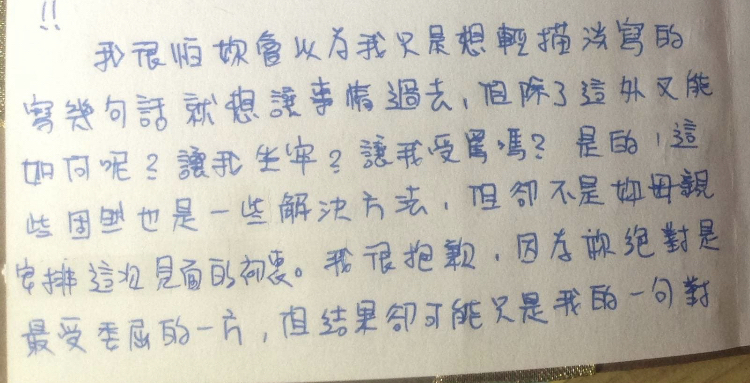 !!
我很怕妳會以為我只是想輕描淡寫的
寫幾句話就想讓事情過去,但除了這外又能
如何呢?讓我坐牢?讓我受罵嗎?是的,這
些固然也是一些解決方法,但卻不是妳母親
安排這次見面的初衷。我很抱歉,因為妳絕對是
最受委屈的一方,但結果卻可能只是我的一句對